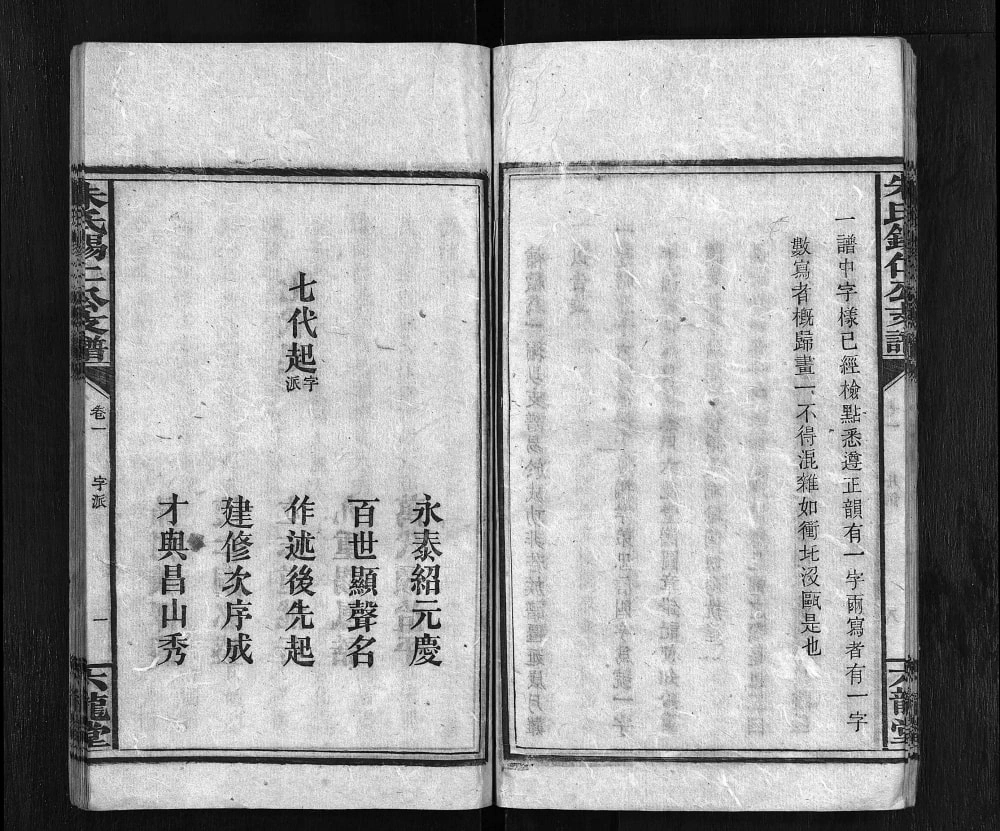 朱氏錫仁公支譜
一譜中字様已經檢點悉遵正韻有一字兩寫者有一字
數寫者槪歸畫一不得混雜如衝圫没甌是也
六龍堂
七代起字派
永泰紹元慶
百世顯聲名
作述後先起
建修次序成
才與昌山秀
朱氏錫仁公支譜
卷一
字派
一
六龍堂